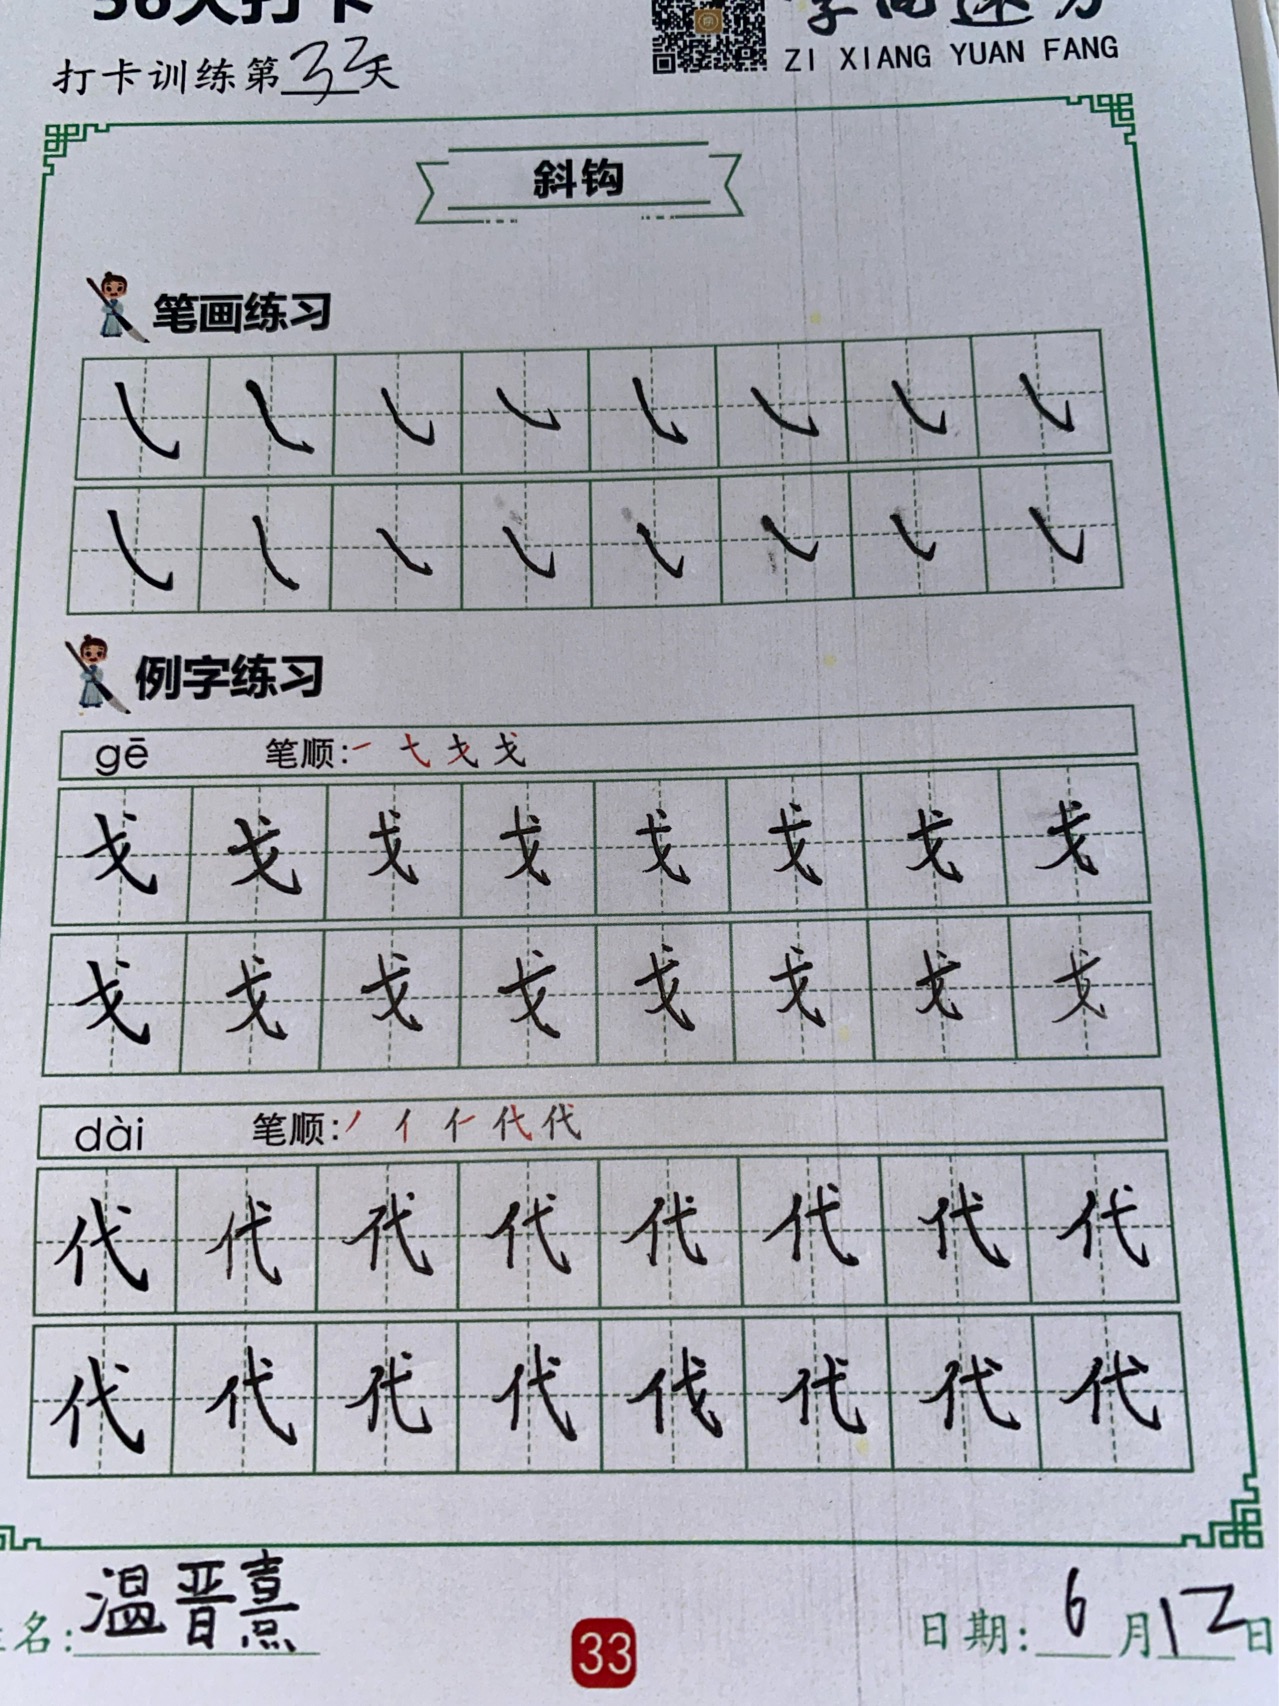 打卡训练第32天
ZI XIANG YUAN FANG
斜钩
笔画练习
例字练习
gē 笔顺:
戈 戈 戈 戈 戈 戈 戈 戈
戈 戈 戈 戈 戈 戈 戈 戈
dài 笔顺:
代 代 代 代 代 代 代 代
代 代 代 代 代 代 代 代
名: 温晋熹
33
日期: 6月12日